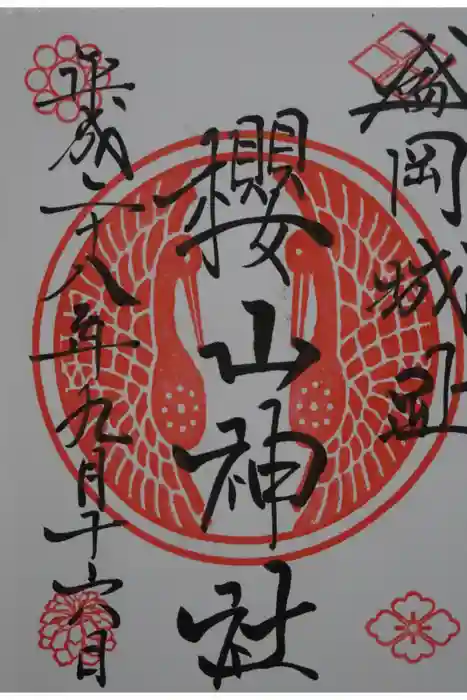 盛岡城跡
櫻山神社
平成二十八年九月十六日